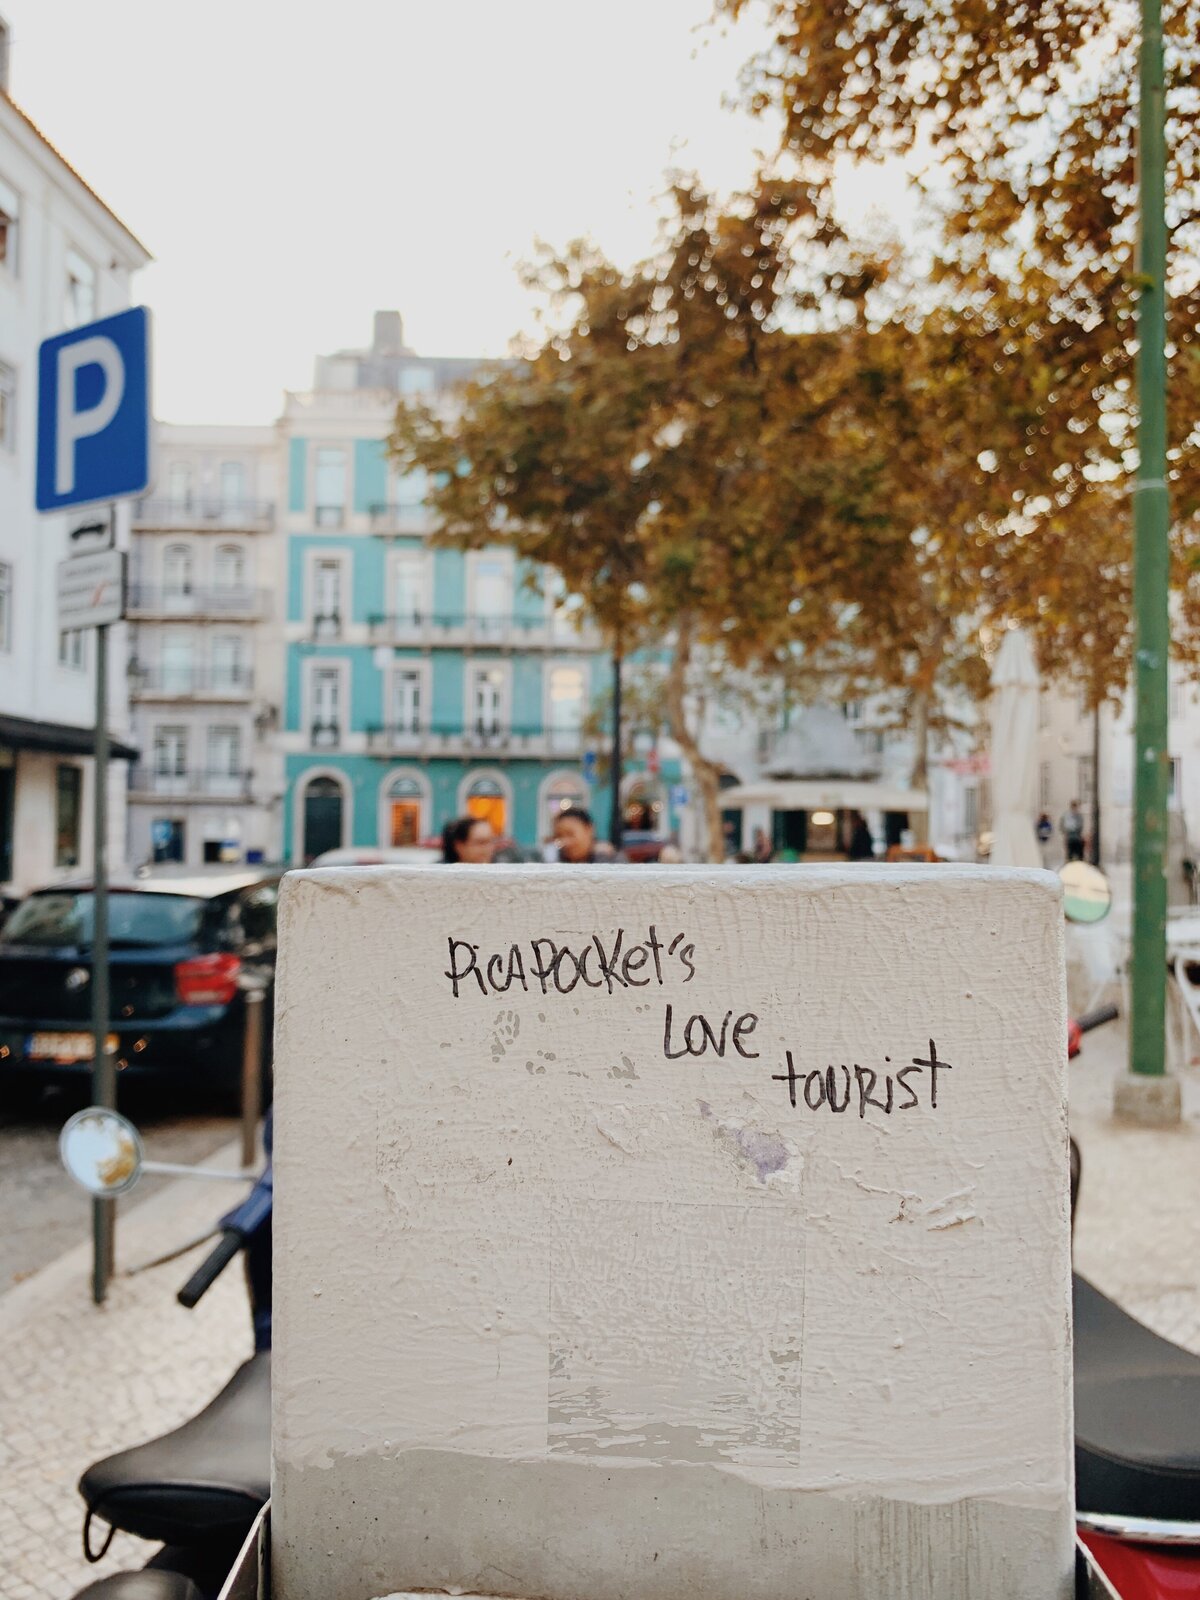 P
PicAPOcKet's
Love
toURist